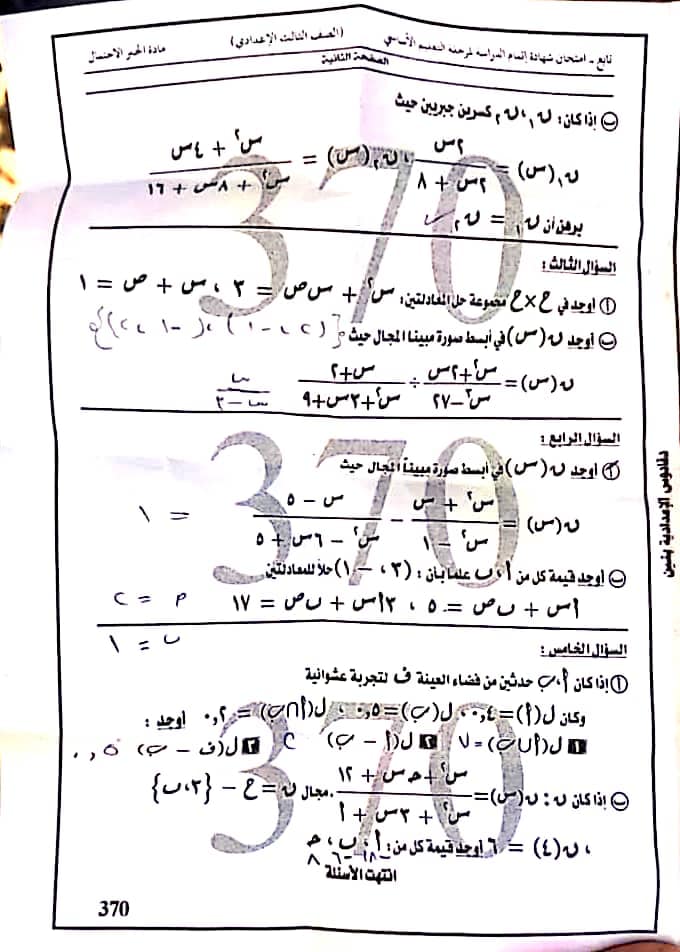 تابع - امتحان شهادة إتمام الدراسه لمرحلة التعليم الأساسي (الصف الثالث الإعدادي) مادة الجبر الاحتمال
الصفحة الثانية
(ب) إذا كان: ن١، ن٢ كسرين جبريين حيث
ن١(س) = ٢س / (٢س + ٨)، ن٢(س) = (س٢ + ٤س) / (س٢ + ٨س + ١٦)
برهن أن ن١ = ن٢
السؤال الثالث:
(أ) أوجد في ح×ح مجموعة حل المعادلتين: س٢ + س ص = ٢، س + ص = ١
(ب) أوجد ن(س) في أبسط صورة مبينا المجال حيث {(٢، -١)، (-١، ٢)}
ن(س) = (س٢+٢س) / (س٣-٢٧) ÷ (س+٢) / (س٢+٣س+٩) س / (س-٣)
السؤال الرابع:
(أ) أوجد ن(س) في أبسط صورة مبيناً المجال حيث
ن(س) = (س٢ + س) / (س٢ - ١) - (س - ٥) / (س٢ - ٦س + ٥) = ١
(ب) أوجد قيمة كل من أ، ب علما بأن: (٣، -١) حلاً للمعادلتين
أس + ب ص = ٥، ٣أس + ب ص = ١٧ م = ٢
السؤال الخامس: ب = ١
(أ) إذا كان أ، ب حدثين من فضاء العينة ف لتجربة عشوانية
وكان ل(أ) = ٠,٤، ل(ب) = ٠,٥، ل(أ∩ب) = ٠,٢ أوجد:
١ ل(أ∪ب) = ٧ ٢ ل(أ - ب) ٢ ٣ ل(ف - ب) ٠,٥
(ب) إذا كان ن: ن(س) = (س٢ + جـ س + ١٢) / (س٢ + ٣س + أ)، مجال ن = ح - {٣، ب}
، ن(٤) = ٦ أوجد قيمة كل من: أ، ب، جـ
-١٨ -٦ ٨
انتهت الأسئلة
370
دقادوس الإعدادية بنين
370
370